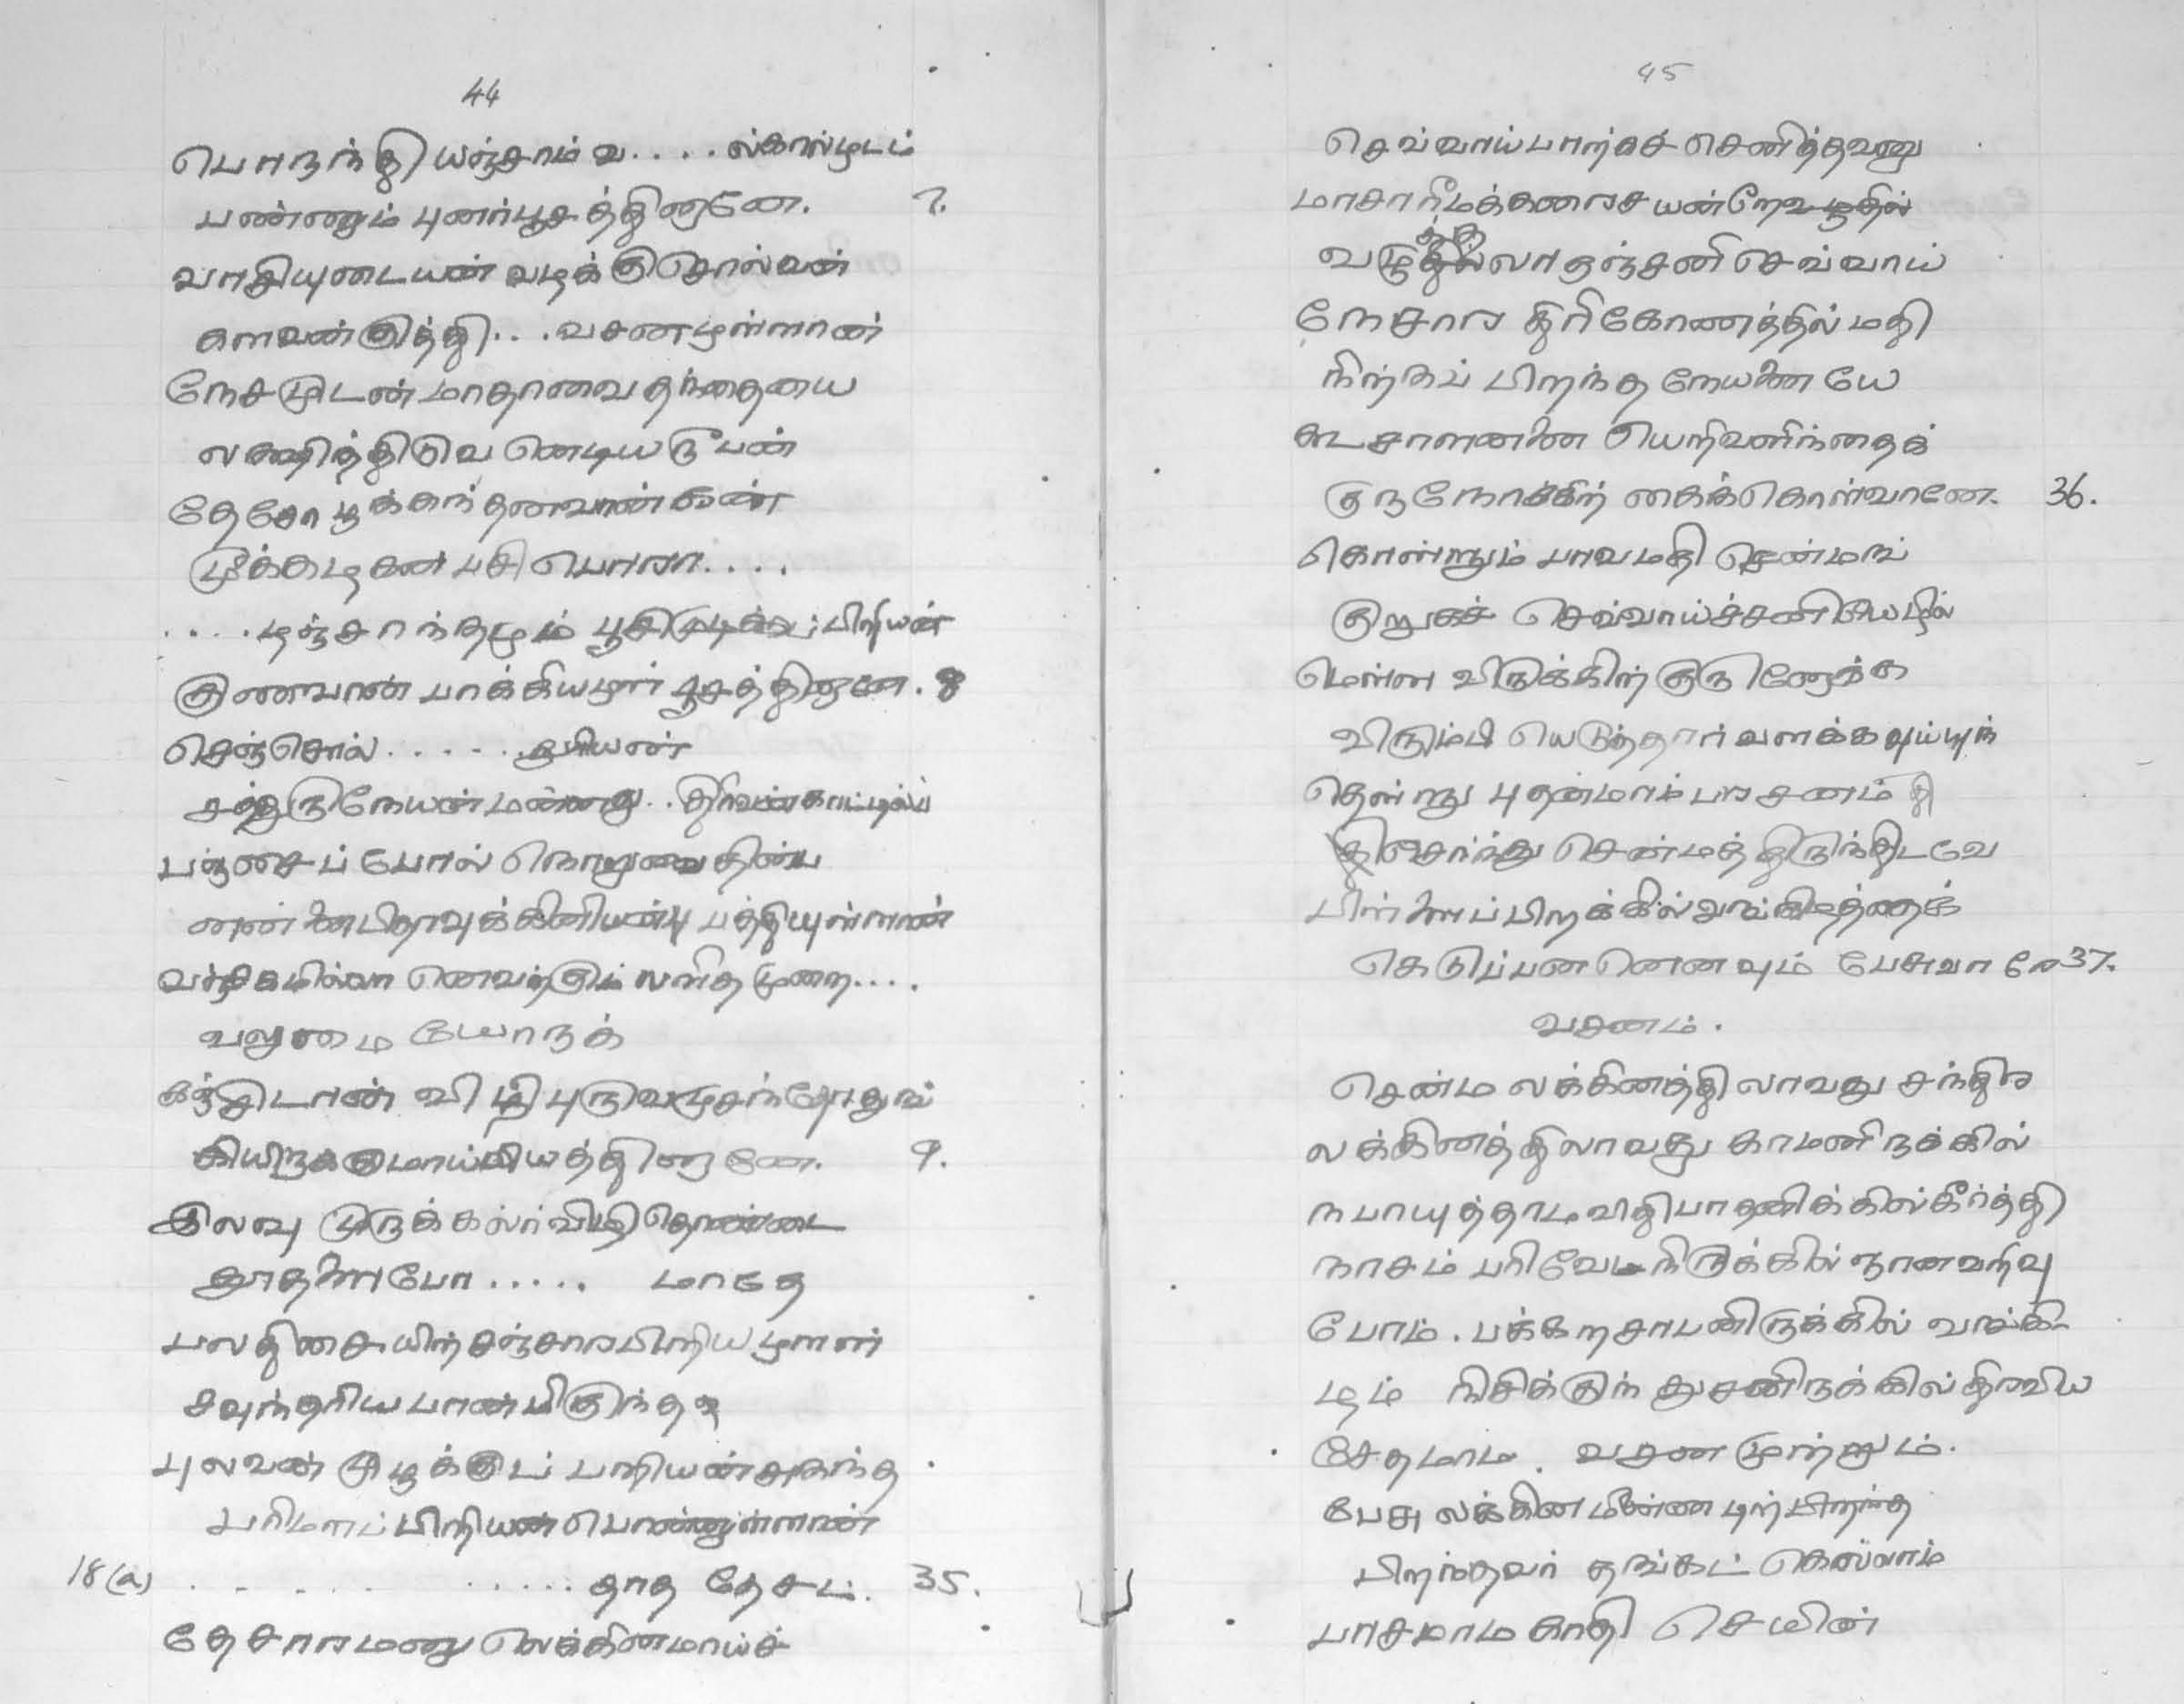 44
பொருந்தியஞ்சாம் வ.... ல்கால்முடம்
பண்ணும் புனர்பூசத்தினானே. 7.
வாதியுடையன் வடிக்கு சொல்வன்
களவன் குத்தி... வசனமுள்ளான்
நேசமுடன் மாதாவை தந்தையை
லகூஷித்திடுவ னெடியரூபன்
தேசோ முக்கந் தனவான் கண்
மூக்கழகன் பசி பொரா....
....டிஞ்சாந்தமும் பூசிமுடிக்கப் பிரியன்
குணவான் பாக்கியமுள் பூசத்தினானே. 8
செஞ்சொல் ..... பூமியன்
சத்துருநேயன்
பஞ்சைப் போல் நொறுவை தின்ப
பிதாவுக்கினியன்பு பத்தியுள்ளான்
வஞ்சகமில்லா னெவர்க்கும்
வலுமை யோருக்
கஞ்சிடான் விழி புருவமுசந்தோதுங்
கியிருக்குமாய்லியத்தினானே. 9.
இலவு முருக்கலர்விழி தொண்டை
தூதளைபோ ..... மாகுத
பலதிசையிற் சஞ்சாரபிரியமுளன்
சவுந்தரிய பான்மிகுந்த
புலவன் முழக்குடப் பரியன் சுகந்த
பரிமளப் பிரியன் பொன்னுள்ளான்
18(a) . . . . . ..... தாத தேசட். 35.
தேசாரமனு லெக்கினமாய்ச்
45
செவ்வாய்பார்கச் செனித்தவனு
மாசாரீமக்கணரச யன்றே
வமுதில்லாதஞ்சனி செவ்வாய்
நேசார திரிகோணத்தில் மதி
நிற்கப் பிறந்த நேயனையே
கடசாளனனை யெறிவளிந்தைக்
குருநோக்கிற் கைக்கொள்வானே. 36.
கொள்ளும் பாவமதி சென்மங்
குறுகச் செவ்வாய்ச்சனியேழில்
மெள்ள விருக்கிற் குருணோக்க
விரும்பி யெடுத்தார் வளக்கவுய்யுந்
தெள்ளு புதன்மாம்பரசனம் தி
சேர்ந்து சென்மத் திருந்திடவே
பிள்ளைப்பிறக்கில்
கெடுப்பன னெனவும் பேசுவாரே 37.
வசனம்.
சென்ம லக்கினத்திலாவது சந்திர
லக்கினத்திலாவது காமனிருக்கில்
நபாயுத்தாடவிதிபாதனிக்கில் கீர்த்தி
நாசம் பரிவேடநிருக்கில் ஞானவறிவு
போம். பக்கறசாபனிருக்கில் வாக்கி
டிம் நிசிக்குந் துசனிருக்கில் திரவிய
சேதமாம. வசன முற்றும்.
பேசு லக்கின மீண்ண டிற் பிறந்த
பிறந்தவர் தங்கட் கெல்லாம்
பாசமாமகாதி செயின்